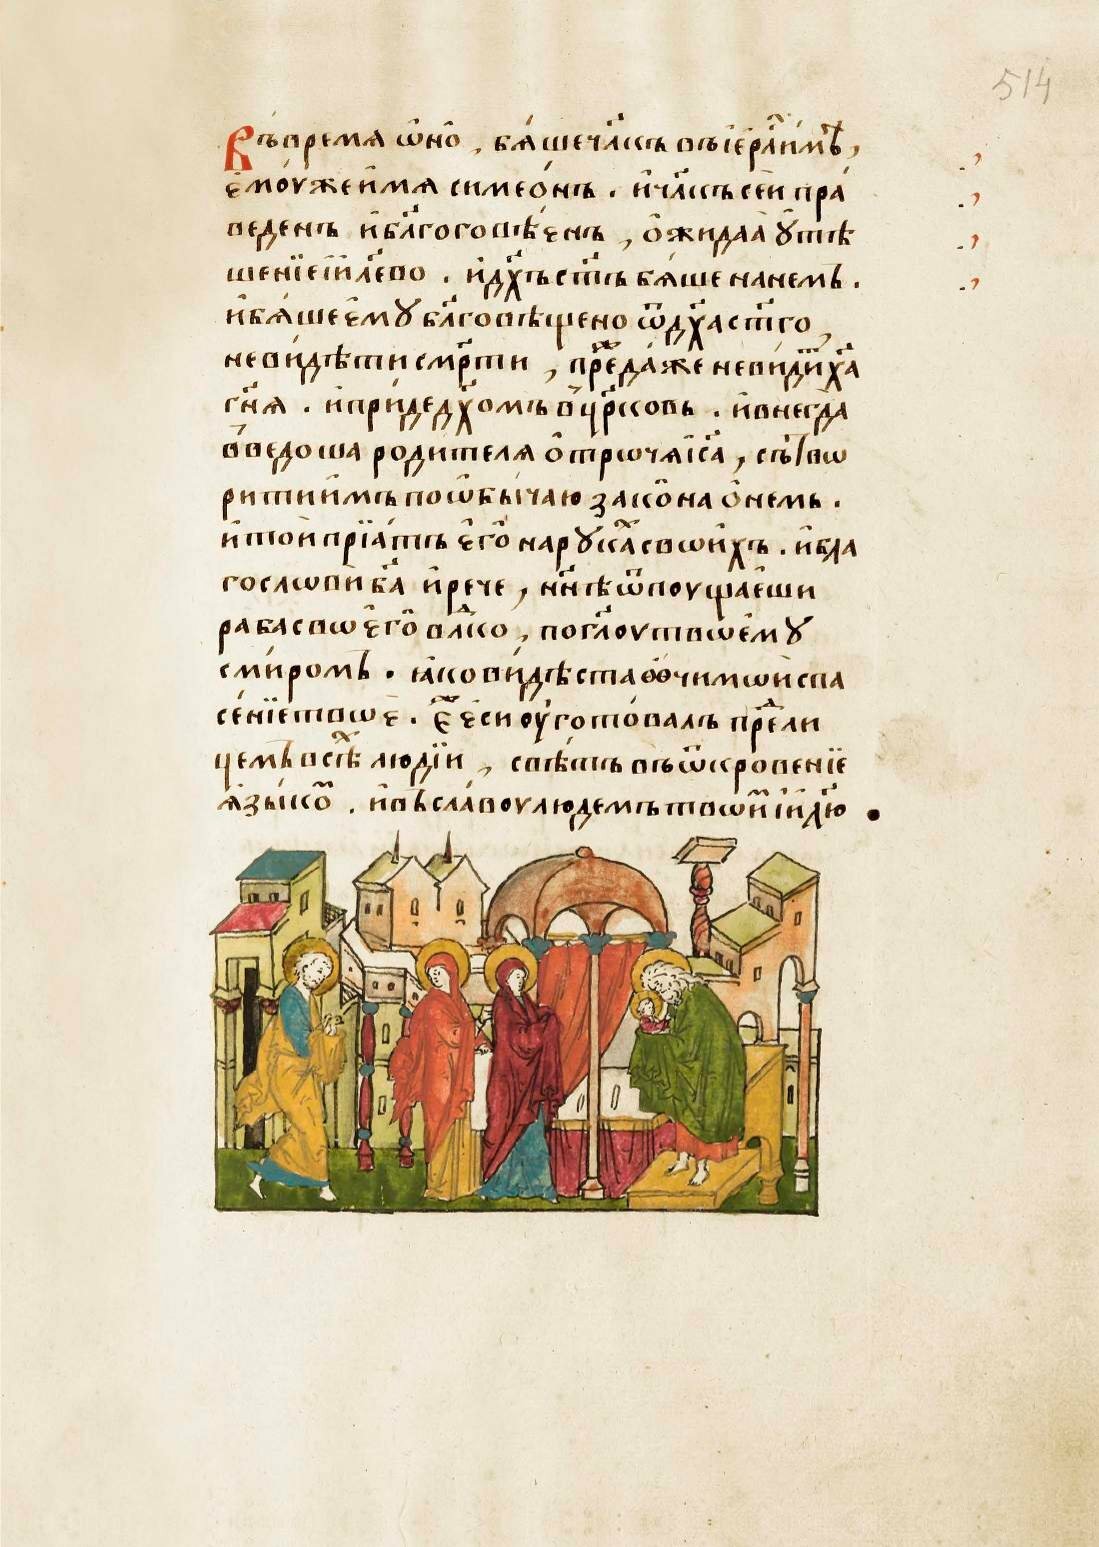 514
Въ время ѡ҆но̀, бѧ́ше чл҃къ въ і҆ерⷭ҇ли́мѣ,
є҆мꙋ́же и҆́мѧ симео́нъ. и҆ чл҃къ се́й пра́
веденъ и҆ бл҃гоговѣ́енъ, ѻ҆жидаѧ ᲂу҆тѣ
ше́нїе і҆и҃лево. и҆ дх҃ъ ст҃ъ бѧ́ше на не́мъ.
и҆ бѧ́ше є҆мꙋ̀ бл҃говѣщено ѿ дх҃а ст҃го,
не ви́дѣти см҃рти, пре́жⷣе да́же не ви́дитъ хⷭ҇а
гⷭ҇нѧ. и҆ прі́де дх҃омъ въ цр҃ковь. и҆ внегда̀
введоша родителѧ ѻ҆троча̀ і҆с҃а, сътво
рити и҆̀мъ по ѡ҆бы́чаю зако́на ѻ҆ не́мь.
и҆ то́й прїѧ́тъ є҆го̀ на рꙋкꙋ̀ своє́ю. и҆ бла
гослови̂ бг҃а и҆ рече, нн҃ѣ ѿпꙋща́еши
раба̀ своего̀ влⷣко, по гл҃ꙋ твоемꙋ̀
с ми́ромъ. ꙗ҆́ко ви́дѣста ѻ҆́чи мои̂ спа
се́нїе твоѐ. є҆́же є҆сѝ ᲂу҆гото́валъ преⷣ ли
цемъ всѣⷯ людїи, свѣ́тъ въ ѿкрове́нїе
ꙗ҆зы́кѡⷨ. и҆ въ сла́вꙋ люде́мъ твои̂ⷨ і҆и҃лю